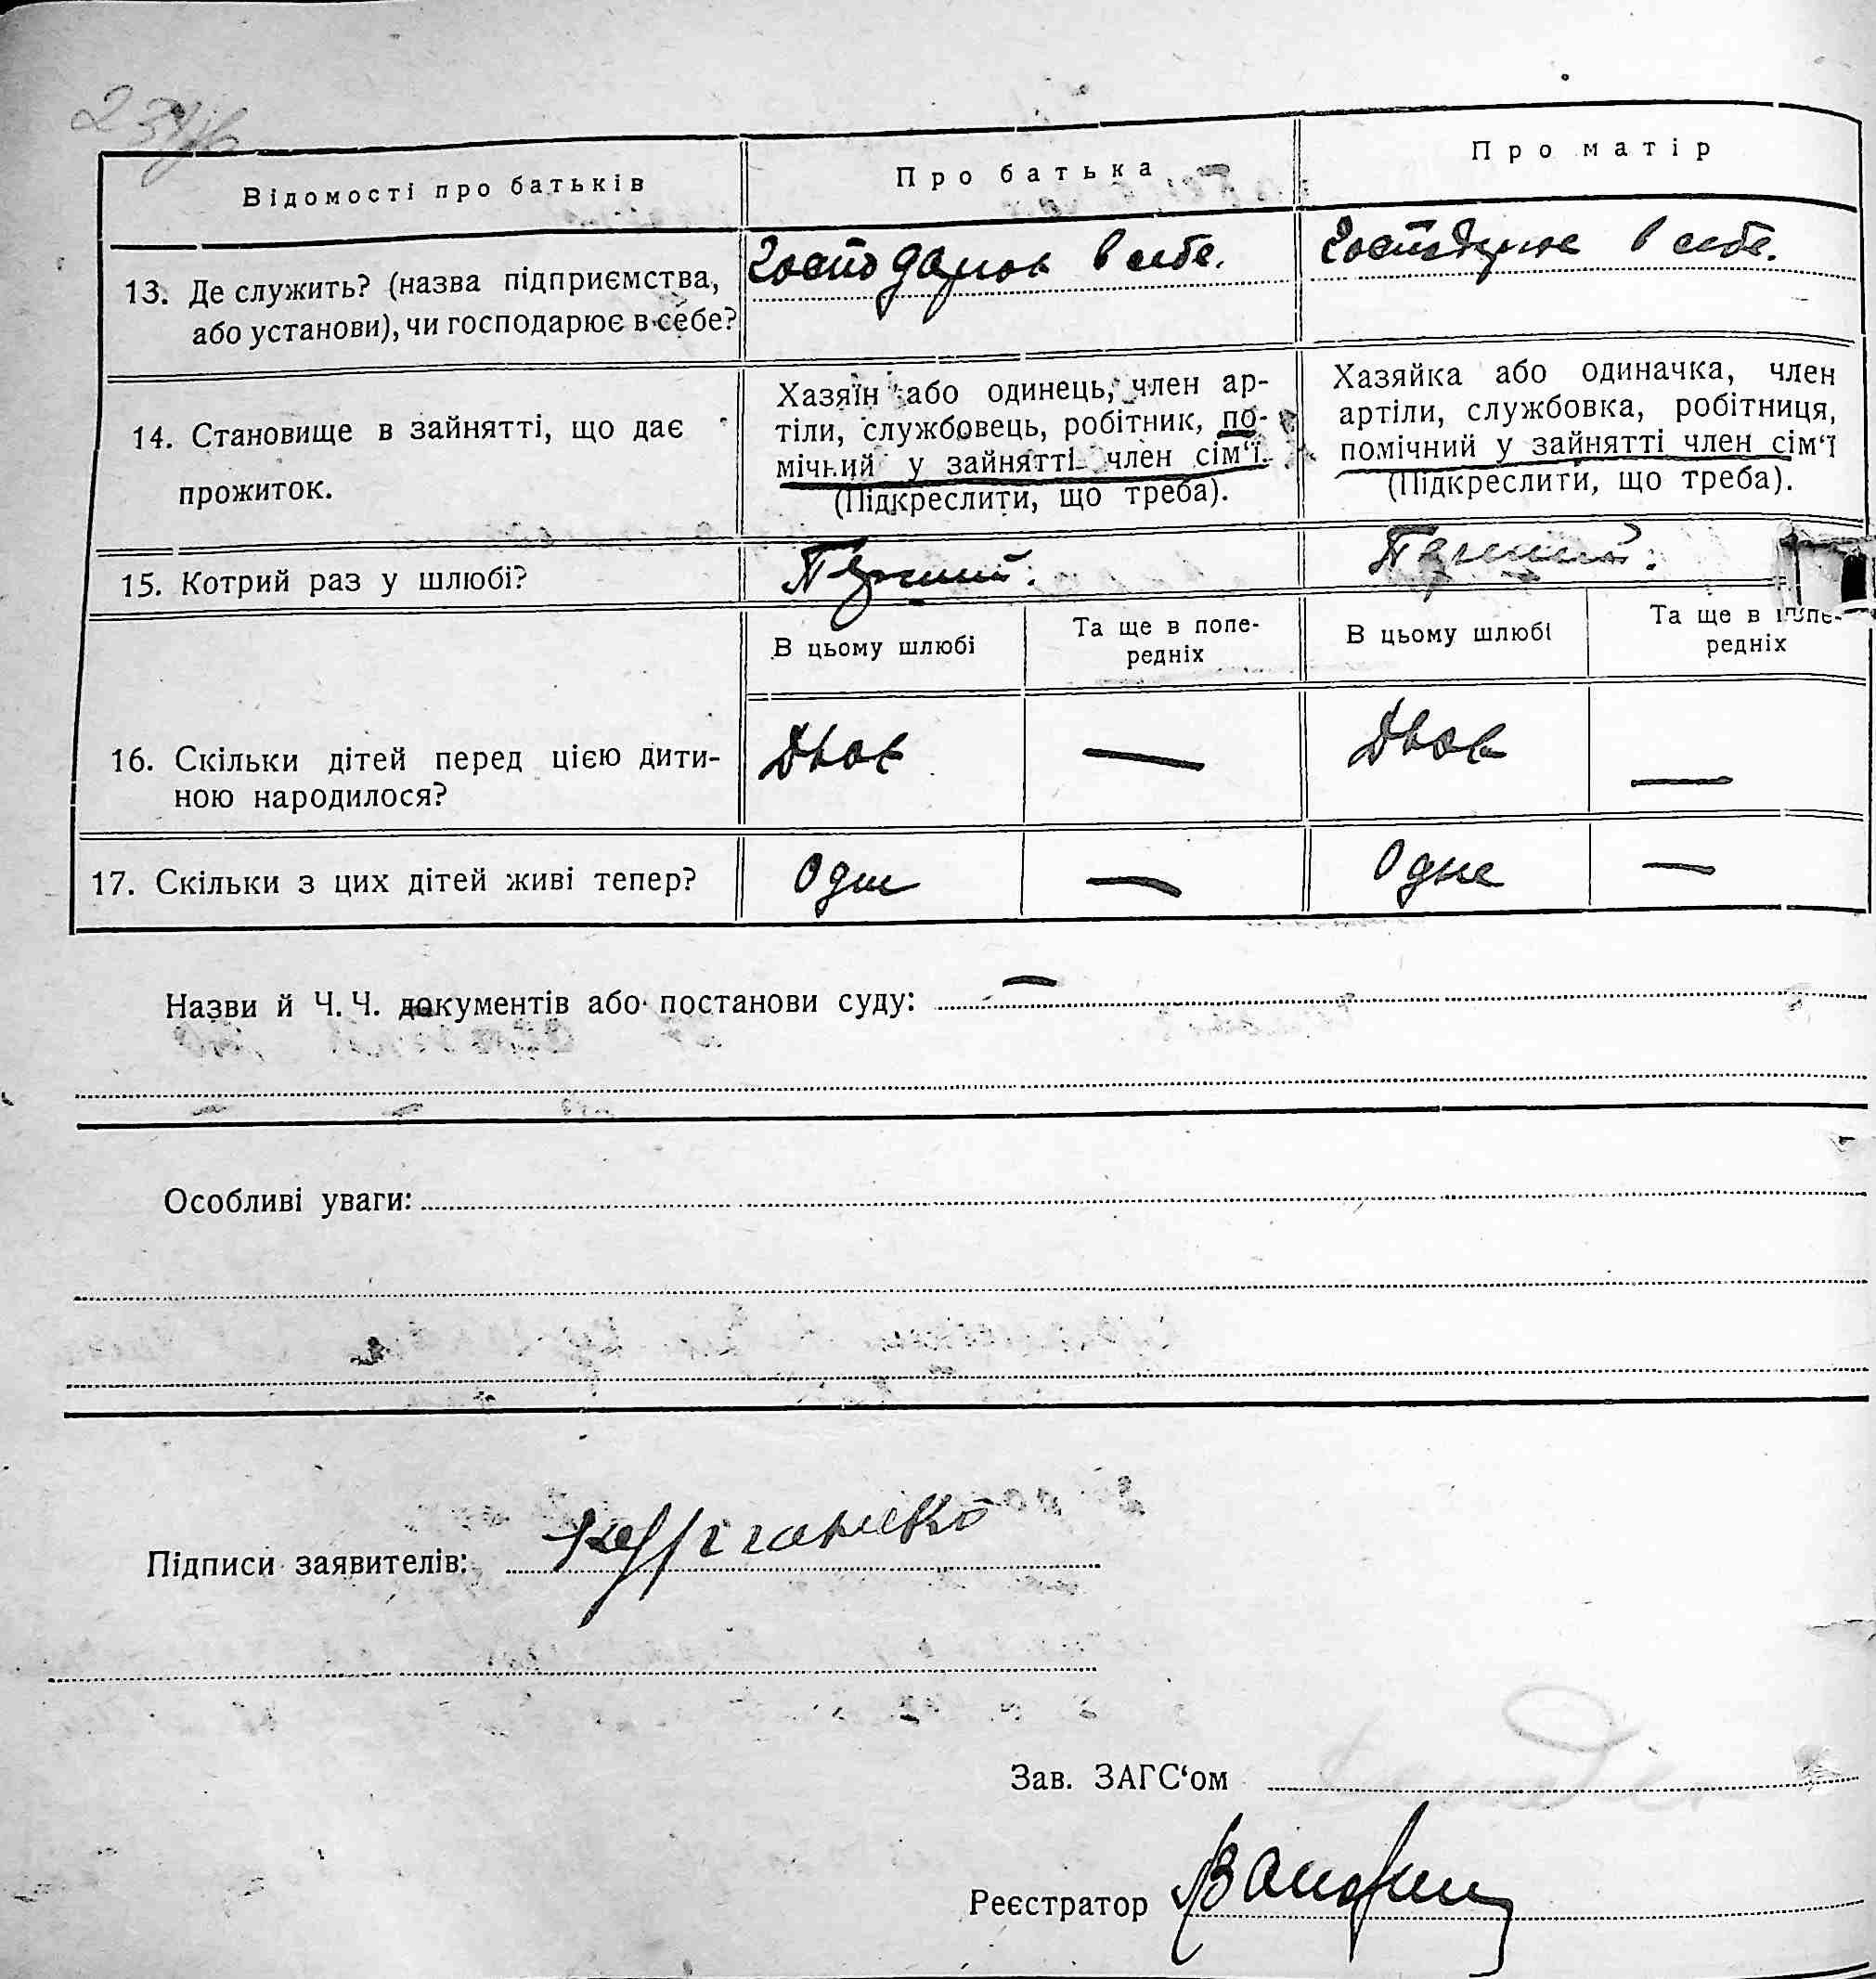 Відомості про батьків
Про батька
Про матір
13. Де служить? (назва підприємства,
або установи), чи господарює в себе?
Господарює в себе.
Господарює в себе.
14. Становище в зайнятті, що дає
прожиток.
Хазяїн або одинець, член ар-
тіли, службовець, робітник, по-
мічний у зайнятті член сім‘ї.
(Підкреслити, що треба).
Хазяйка або одиначка, член
артіли, службовка, робітниця,
помічний у зайнятті член сім‘ї
(Підкреслити, що треба).
15. Котрий раз у шлюбі?
Перший.
Перший.
В цьому шлюбі
Та ще в попе-
редніх
В цьому шлюбі
Та ще в попе-
редніх
16. Скільки дітей перед цією дити-
ною народилося?
Двоє
—
Двоє
—
17. Скільки з цих дітей живі тепер?
Одне
—
Одне
—
Назви й Ч. Ч. документів або постанови суду: —
Особливі уваги:
Підписи заявителів:
Зав. ЗАГС‘ом
Реєстратор